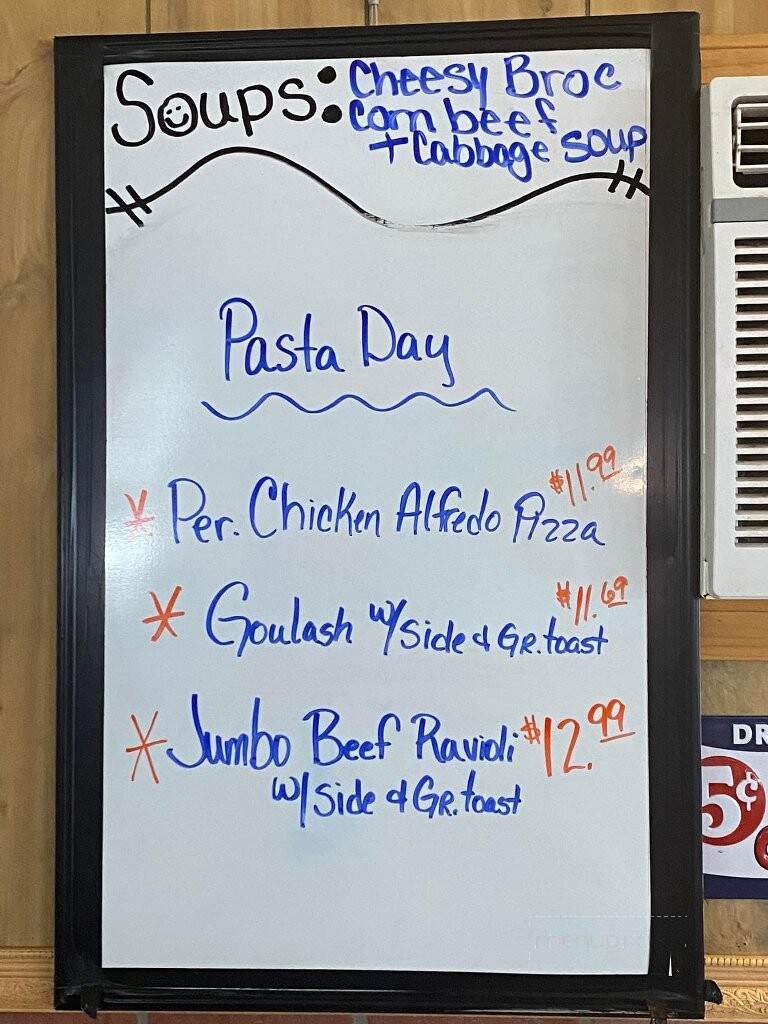 Soups: Cheesy Broc
Corn beef
+ Cabbage Soup
Pasta Day
$11.99
* Per. Chicken Alfredo Pizza
$11.69
* Goulash w/ Side & Gr. toast
* Jumbo Beef Ravioli $12.99
w/ Side & Gr. toast
DR
5¢